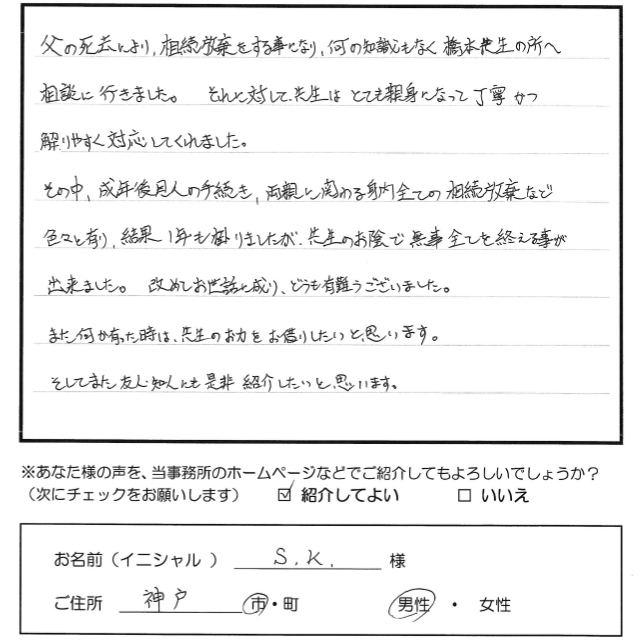 父の死去により、相続放棄をする事になり、何の知識もなく橋本先生の所へ
相談に行きました。 それに対して、先生はとても親身になって丁寧かつ
解りやすく対応してくれました。
その中、成年後見人の手続き、両親に関わる身内全ての相続放棄など
色々と有り、結果1年も掛りましたが、先生のお陰で無事全てを終える事が
出来ました。 改めてお世話に成り、どうも有難うございました。
また何か有った時は、先生のお力をお借りしたいと思います。
そしてまた友人・知人にも是非紹介したいと思います。
※あなた様の声を、当事務所のホームページなどでご紹介してもよろしいでしょうか?
(次にチェックをお願いします) ☑ 紹介してよい □ いいえ
お名前(イニシャル ) S.K. 様
ご住所 神戸 市・町 男性 ・ 女性